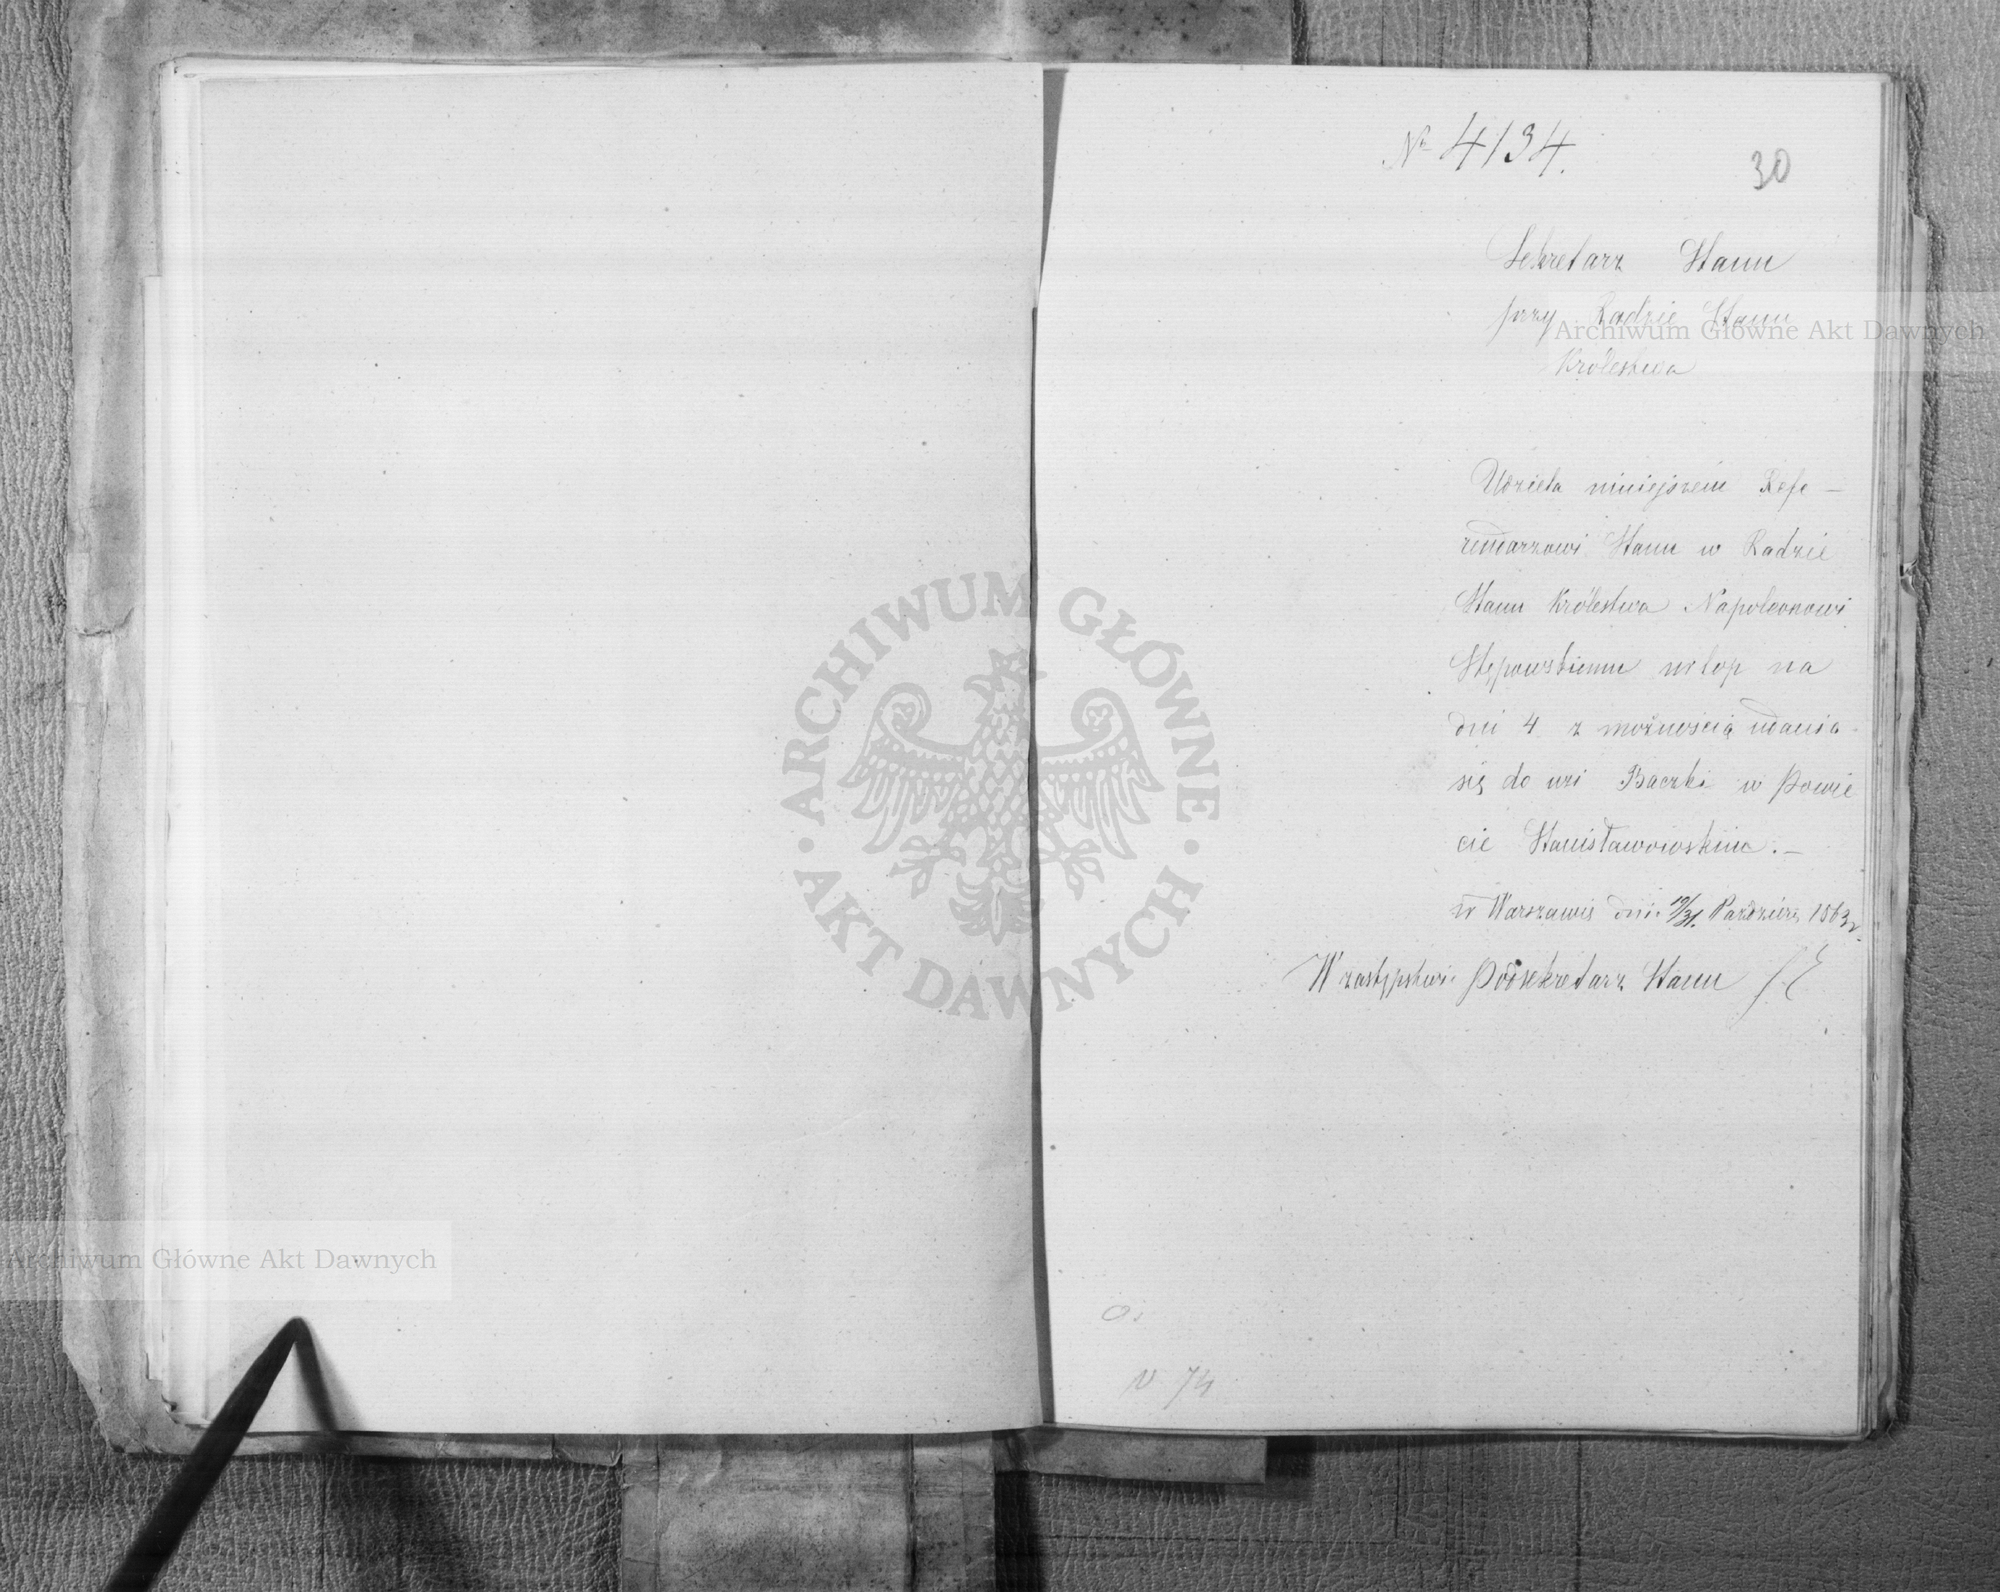 № 4134.
30
Sekretarz Stanu
przy Radzie Stanu
Królestwa
Udziela niniejszem Refe-
rendarzowi Stanu w Radzie
Stanu Królestwa Napoleonowi
Stępowskiemu urlop na
dni 4 z możnością udania
się do wsi Baczki w Powie
cie Stanisławowskim.-
w Warszawie dnia 19/31 Paździer: 1863 r.
W zastępstwie Podsekretarz Stanu
ARCHIWUM GŁÓWNE
AKT DAWNYCH
Archiwum Główne Akt Dawnych
Archiwum Główne Akt Dawnych